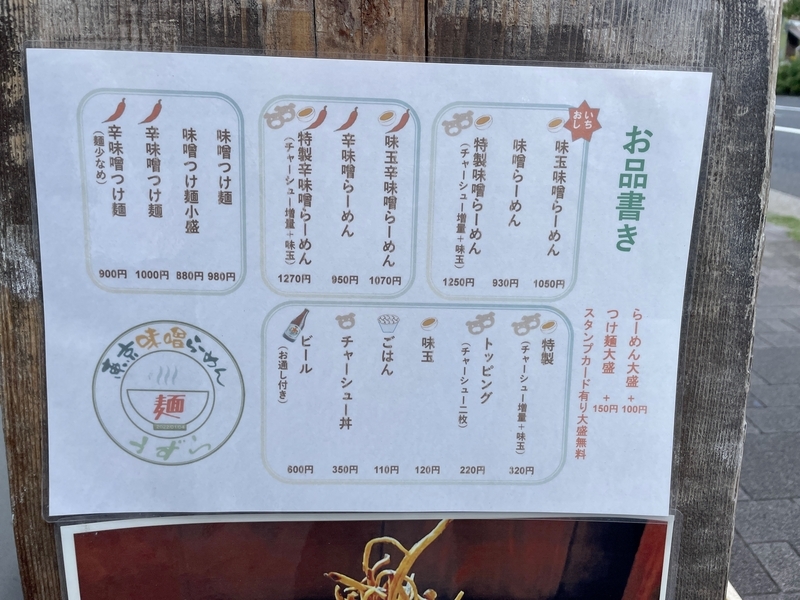 お品書き
いち
おし
味玉味噌らーめん
1050円
味噌らーめん
930円
特製味噌らーめん
（チャーシュー増量＋味玉）
1250円
味玉辛味噌らーめん
1070円
辛味噌らーめん
950円
特製辛味噌らーめん
（チャーシュー増量＋味玉）
1270円
味噌つけ麺
980円
味噌つけ麺小盛
880円
辛味噌つけ麺
1000円
辛味噌つけ麺
（麺少なめ）
900円
らーめん大盛 ＋100円
つけ麺大盛 ＋150円
スタンプカード有り大盛無料
特製
（チャーシュー増量＋味玉）
320円
トッピング
（チャーシュー二枚）
220円
味玉
120円
ごはん
110円
チャーシュー丼
350円
ビール
（お通し付き）
600円
東京味噌らーめん
麺